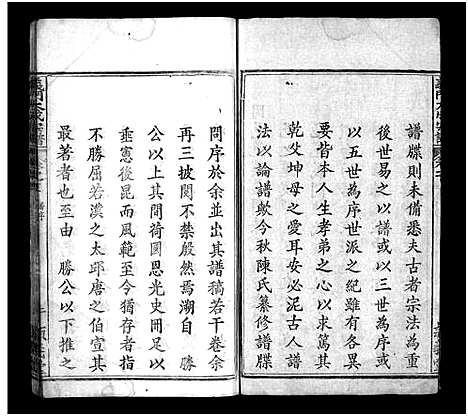 譜牒則未備悉夫古者宗法為重
後世易之以譜或以三世為序或
以五世為序世派之紀綱以萬其
要皆本人生孝弟之心以寓其
乾父坤母之愛耳安必泥古人譜
法以論譜歟今秋陳氏纂修譜牒
問序於余並出其譜稿若干卷余
再三披閱不禁殷然焉溯自 勝
公以上其間荷國恩光史冊足以
垂憲後昆而風範至今猶存者指
不勝屈若漢之太邱唐之伯宣其
最著者也至由 勝公以下推之